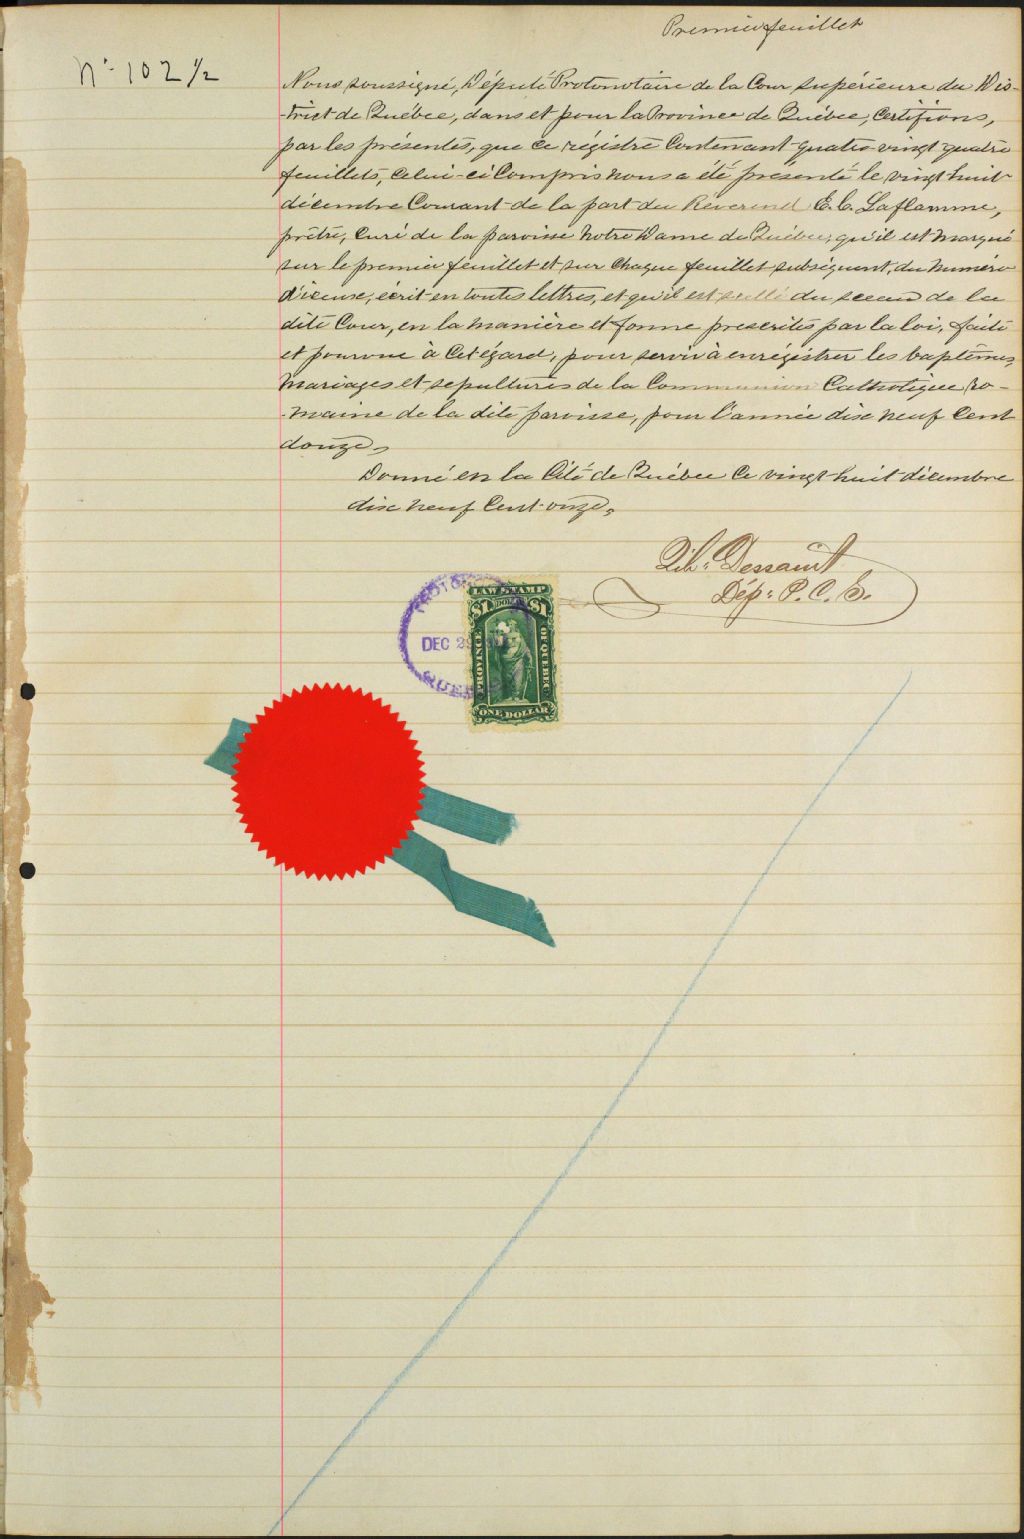 Premier feuillet
No 102 1/2
Nous soussigné, Député Protonotaire de la Cour Supérieure du Dis-
-trict de Québec, dans et pour la Province de Québec, Certifions,
par les présentes, que ce régistre Contenant quatre-vingt quatre
feuillets, celui-ci Compris nous a été présenté le vingt huit
décembre Courant de la part du Révérend E. C. Laflamme,
prêtre, Curé de la paroisse Notre Dame de Québec, qu'il est marqué
sur le premier feuillet et sur chaque feuillet subséquent, du numéro
d'icence, écrit en toutes lettres, et qu'il est scellé du sceau de la
dite Cour, en la manière et forme prescrites par la loi, faite
et pourvue à cet égard, pour servir à enrégistrer les baptêmes,
mariages et sépultures de la Communion Catholique, Ro-
-maine de la dite paroisse, pour l'année dix neuf Cent
douze.
Donné en la Cité de Québec ce vingt-huit décembre
dix neuf Cent onze.
Dessault
Dép. P. C. S.
LAW STAMP
$1 DOLLAR $1
PROVINCE
OF QUEBEC
ONE DOLLAR
DEC 28